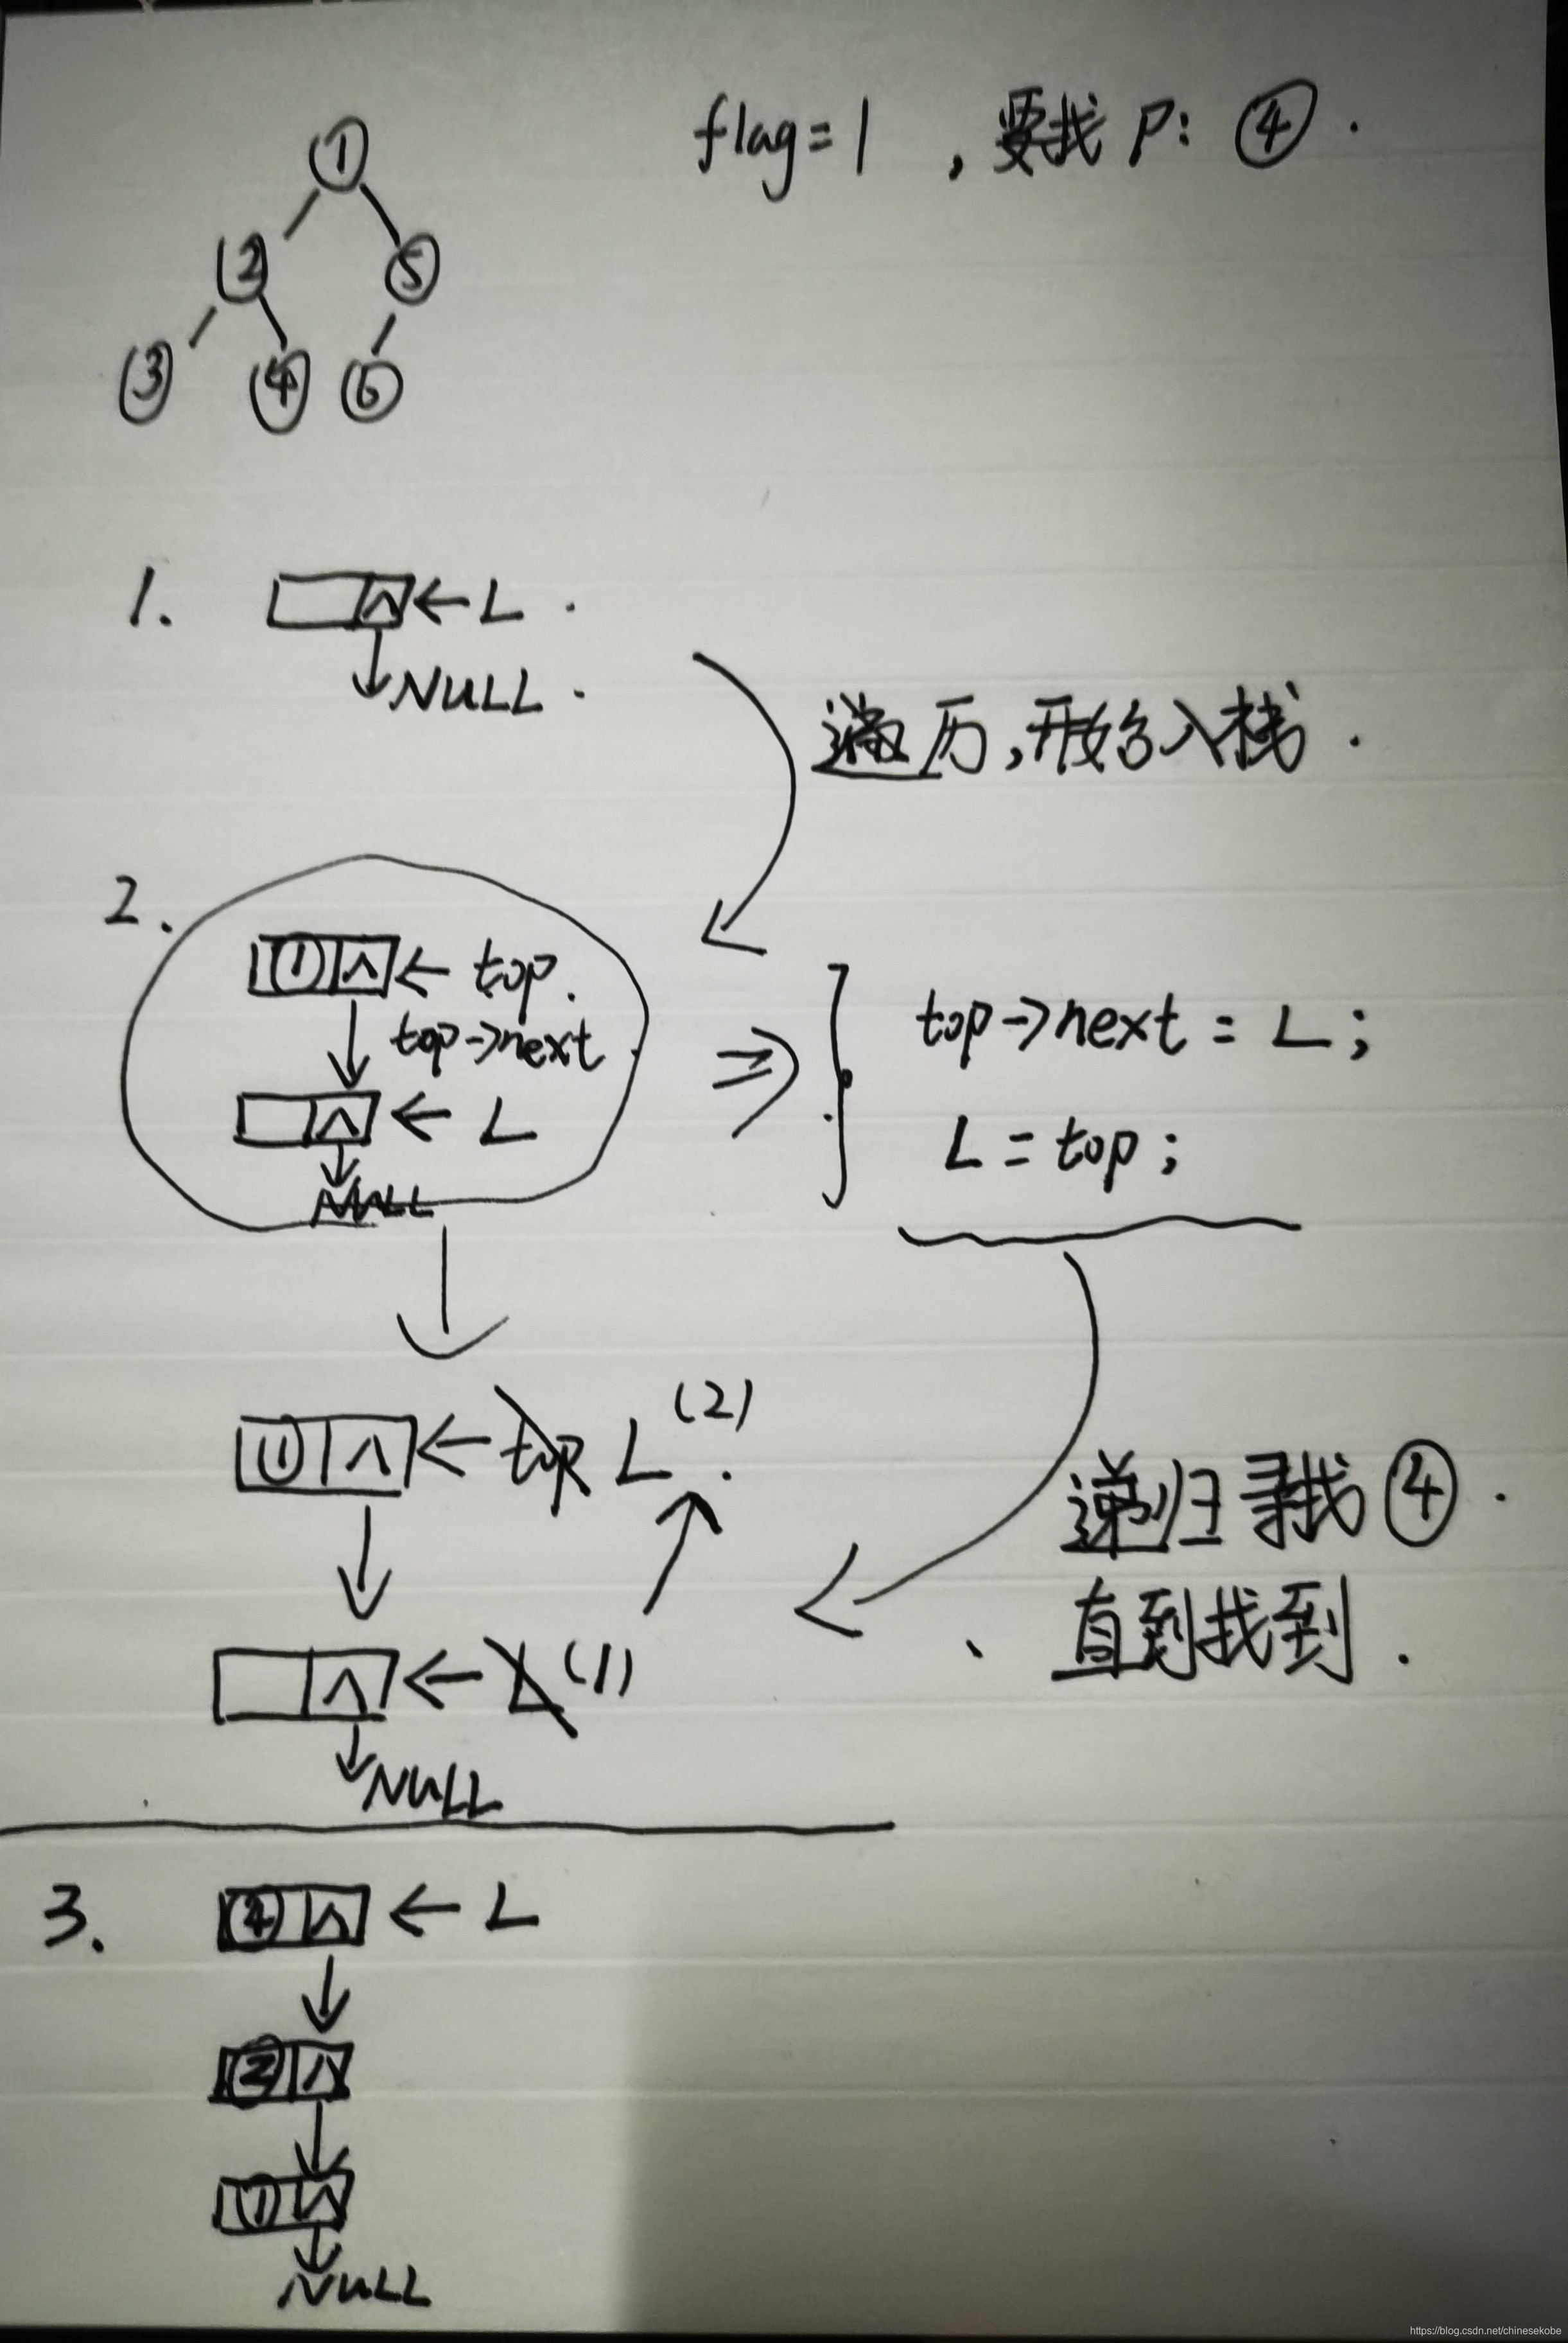 flag=1 ,要找 P: ④.
①
② ⑤
③ ④ ⑥
1. ∧ ← L .
NULL .
遍历,开始入栈 .
2.
① ∧ ← top.
top->next
∧ ← L
NULL
⇒ { top->next = L;
L = top;
① ∧ ← top L (2) .
∧ ← L (1)
NULL
递归寻找 ④ .
、直到找到 .
3. ④ ∧ ← L
② ∧
① ∧
NULL
https://blog.csdn.net/chinesekobe